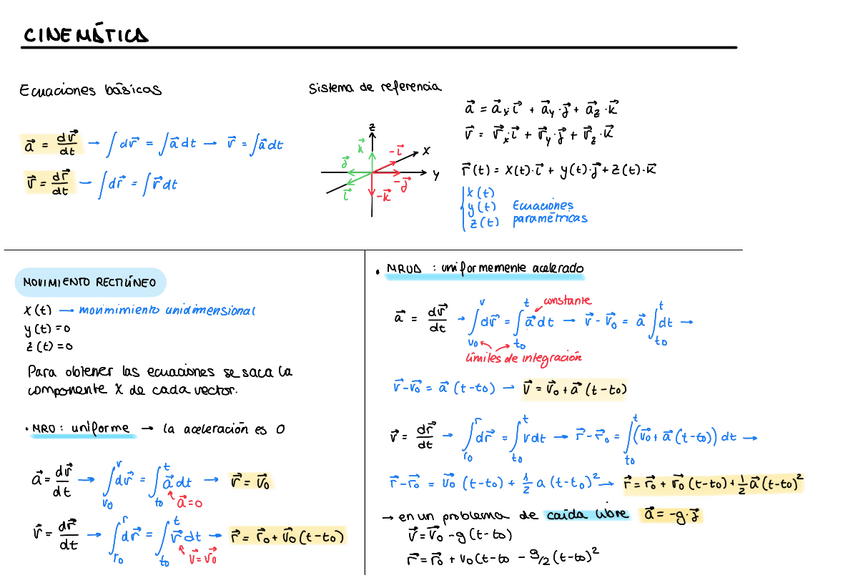 CINEMÁTICA
Ecuaciones básicas
a⃗ = dv⃗/dt → ∫dv⃗ = ∫a⃗dt → v⃗ = ∫a⃗dt
v⃗ = dr⃗/dt → ∫dr⃗ = ∫v⃗dt
Sistema de referencia
z
k⃗
-i⃗
x
j⃗
y
i⃗
-k⃗
-j⃗
a⃗ = a⃗x i⃗ + a⃗y·j⃗ + a⃗z·k⃗
v⃗ = v⃗x·i⃗ + v⃗y·j⃗ + v⃗z·k⃗
r⃗(t) = x(t)·i⃗ + y(t)·j⃗ + z(t)·k⃗
x(t)
y(t) Ecuaciones
z(t) paramétricas
MOVIMIENTO RECTILÍNEO
x(t) → monimimiento unidimensional
y(t)=0
z(t)=0
Para obtener las ecuaciones se saca la
componente X de cada vector.
· MRU: uniforme → la aceleración es 0
a⃗ = dv⃗/dt → ∫_v0^v dv⃗ = ∫_t0^t a⃗dt → v⃗ = v⃗0
a⃗=0
v⃗ = dr⃗/dt → ∫_r0^r dr⃗ = ∫_t0^t v⃗dt → r⃗ = r⃗0 + v⃗0(t-t0)
v⃗=v⃗0
· MRUA : uniformemente acelerado
constante
a⃗ = dv⃗/dt → ∫_v0^v dv⃗ = ∫_t0^t a⃗dt → v⃗ - v⃗0 = a⃗ ∫_t0^t dt →
límites de integración
v⃗-v⃗0 = a⃗(t-t0) → v⃗ = v⃗0+a⃗(t-t0)
v⃗ = dr⃗/dt → ∫_r0^r dr⃗ = ∫_t0^t vdt → r⃗-r⃗0 = ∫_t0^t (v⃗0+a⃗(t-t0)) dt →
r⃗-r⃗0 = v⃗0 (t-t0) + 1/2 a (t-t0)² → r⃗ = r⃗0 + v⃗0 (t-t0) + 1/2 a⃗(t-t0)²
→ en un problema de caída libre a⃗ = -g·j⃗
v⃗ = v⃗0 -g(t-t0)
r⃗ = r⃗0 + v0(t-t0 - g/2 (t-t0)²